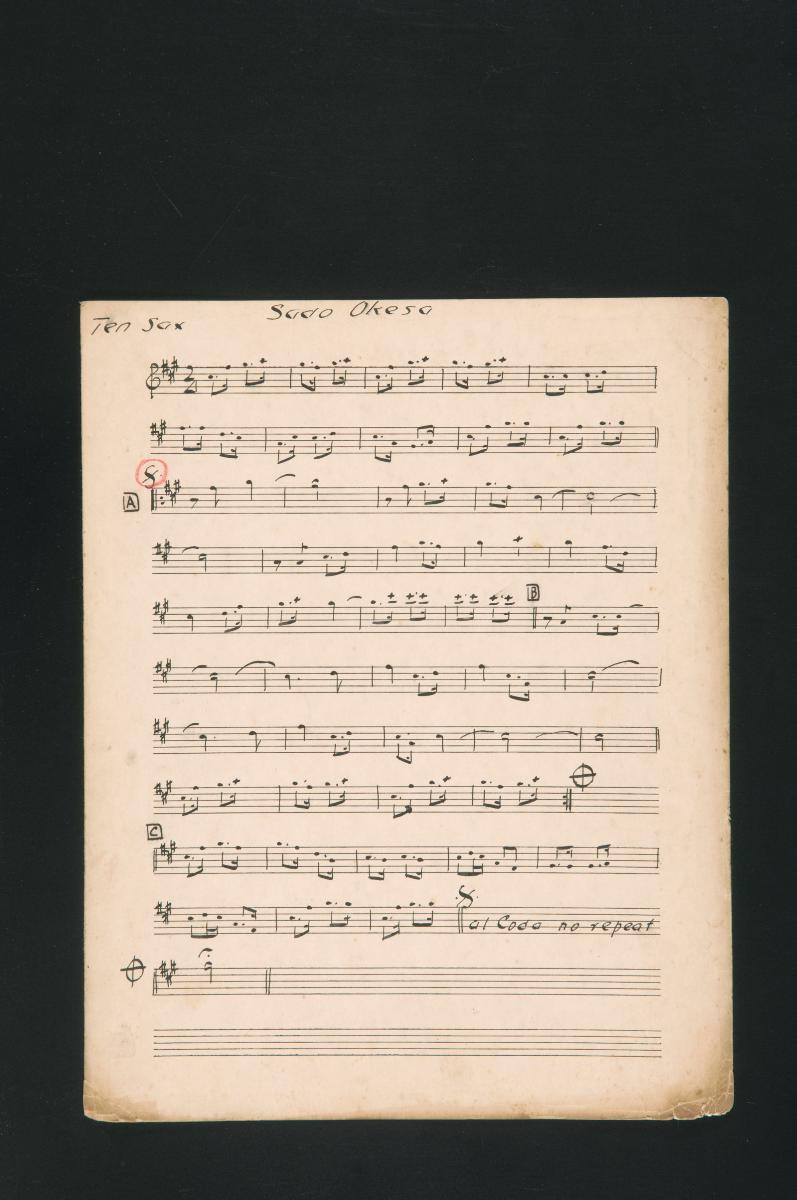 Sado Okesa
Ten Sax
2
4
A
B
C
al Coda no repeat